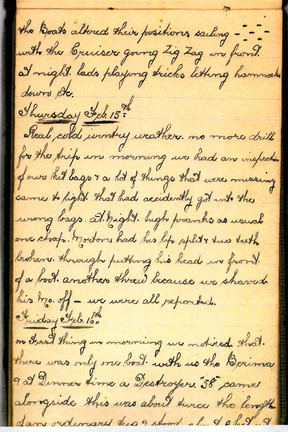 the Boats altered their positions sailing
with the Cruiser going Zig Zag in front.
at night lads playing tricks letting hammocks
down etc.
Thursday Feb. 15th
Real cold wintry weather. no more drill
for the trip in morning we had an inspection
of our kit bags & a lot of things that were missing
came to light that had accidently got into the
wrong bags. at Night. high pranks as usual
one chap. Morton had his lip split & two teeth
broken through putting his head in front
of a boot. another threw because we shaved
his Mo. off – we were all reported.
Friday Feb. 16th
in first thing in morning we noticed that
there was only one boat with us the Berima
& at Dinner time a Destroyer "58" came
alongside this was about twice the length
of an ordinary tug & stood